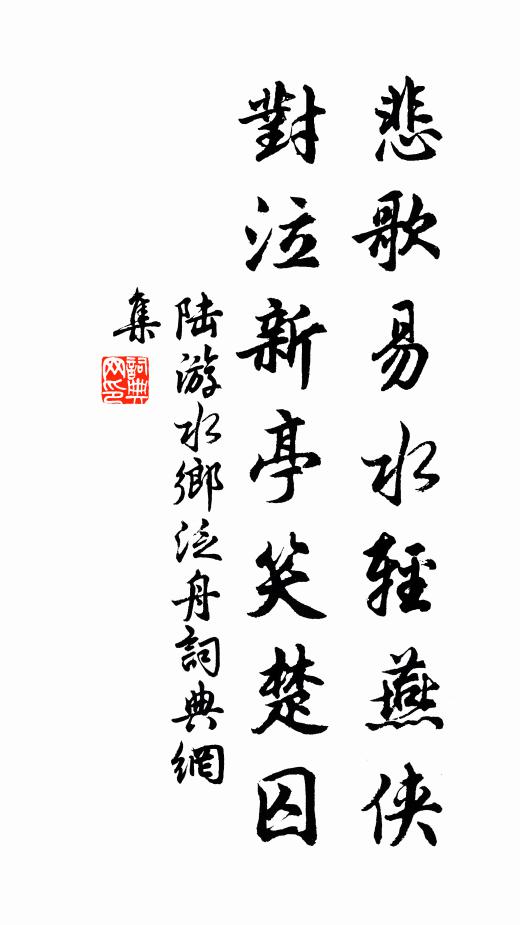 悲歌易水輕燕俠
對泣新亭笑楚囚
陸游水鄉泛舟詞典網
集
詞典网印